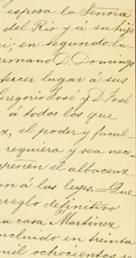 esposa la Señora
del Rio y á su hijo
i; en segundo lu
ermano D. Domingo
hacer lugar á sus
Gregorio José y D. José
á todos los que
x, el poder y facul
requiera y sea nec
peñen el albaceaz
an á las leyes. Que
reglo definitivo
a casa Martinez
ncluido en treinta
mil ochocientos